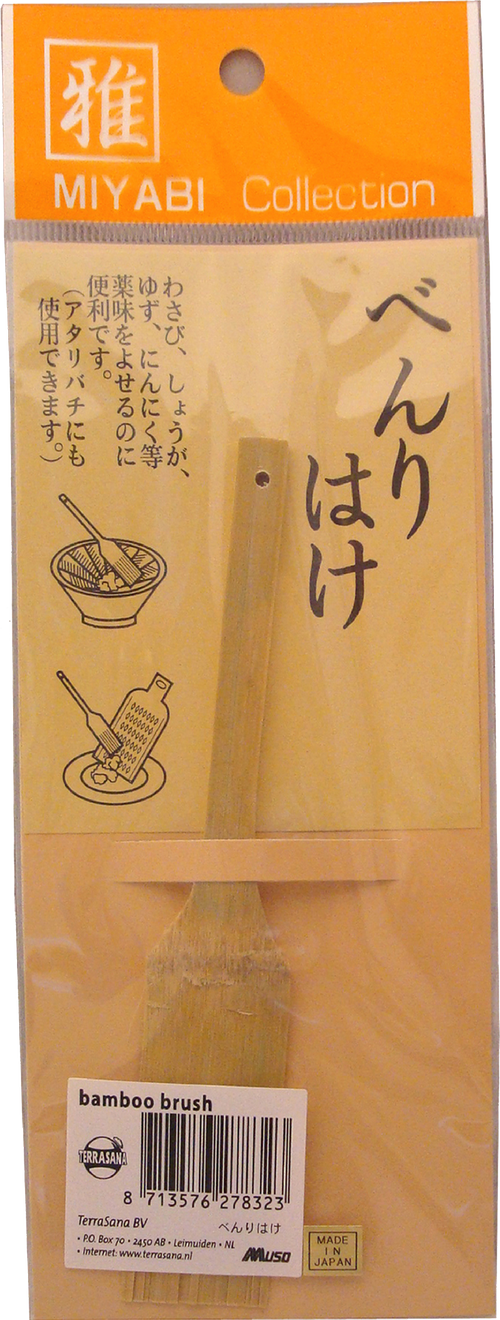 雅
MIYABI Collection
べんり
はけ
わさび、しょうが、
ゆず、にんにく等
薬味をよせるのに
便利です。
（アタリバチにも
使用できます。）
bamboo brush
TERRASANA
8 713576 278323
TerraSana BV
べんりはけ
• P.O. Box 70 • 2450 AB • Leimuiden • NL
• Internet: www.terrasana.nl
MUSO
MADE
IN
JAPAN